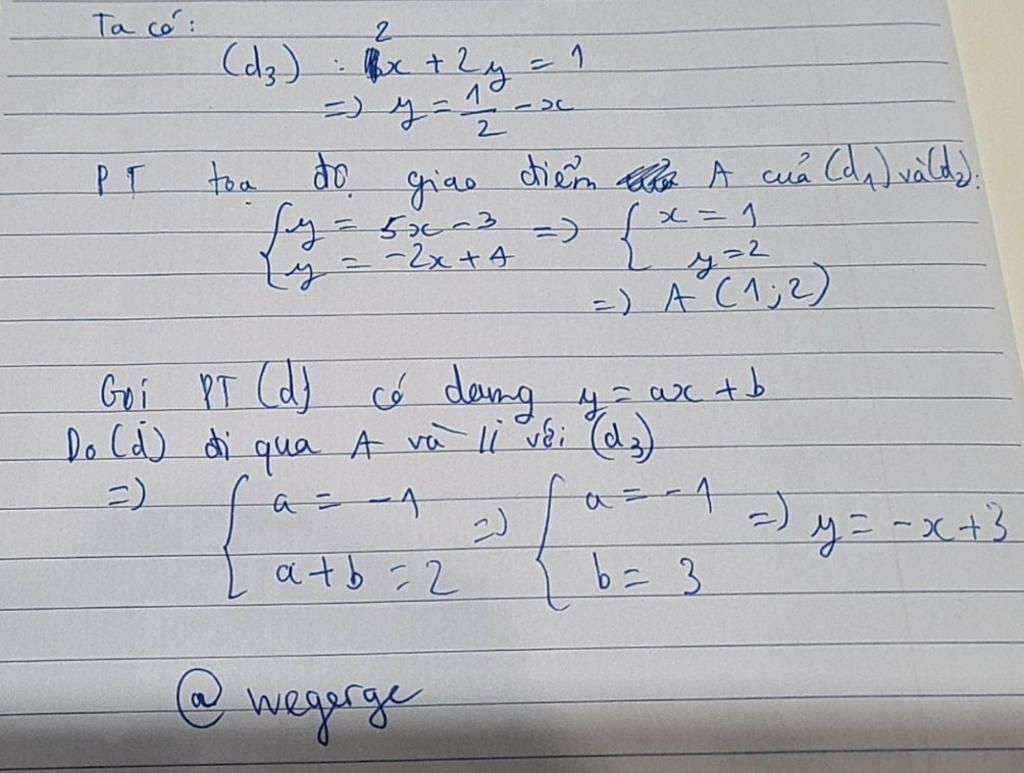 Ta có:
(d₃) : 2x + 2y = 1
=> y = 1/2 - x
PT toạ độ giao điểm A của (d₁) và (d₂):
{ y = 5x - 3 => { x = 1
{ y = -2x + 4 { y = 2
=> A (1; 2)
Gọi PT (d) có dạng y = ax + b
Do (d) đi qua A và // với (d₃)
=> { a = -1 => { a = -1 => y = -x + 3
{ a + b = 2 { b = 3
@ wegerge